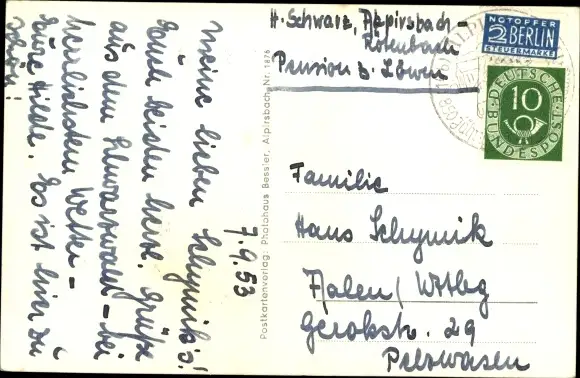 H. Schwarz, Alpirsbach-
Rötenbach
Pension z. Löwen
NOTOPFER
2 BERLIN
STEUERMARKE
DEUTSCHE
10
BUNDESPOST
7.9.53
Meine lieben Schymik's!
Euch beiden herzl. Grüße
aus dem Schwarzwald - bei
herrlichstem Wetter -
Eure Hilde. Es ist hier zu
schön!
Postkartenverlag: Photohaus Bessler, Alpirsbach Nr. 1876
Familie
Hans Schymik
Aalen/Wttbg
Gerokstr. 29
Pelzwasen